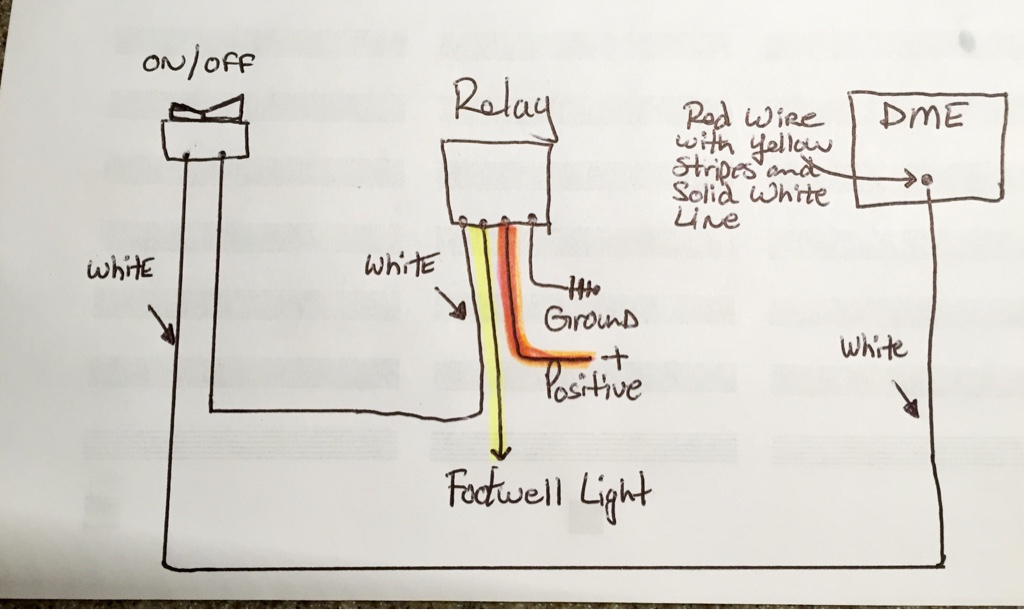 ON/OFF
Relay
Red Wire
with yellow
Stripes and
Solid White
Line
DME
White
White
Ground
+
Positive
White
Footwell Light